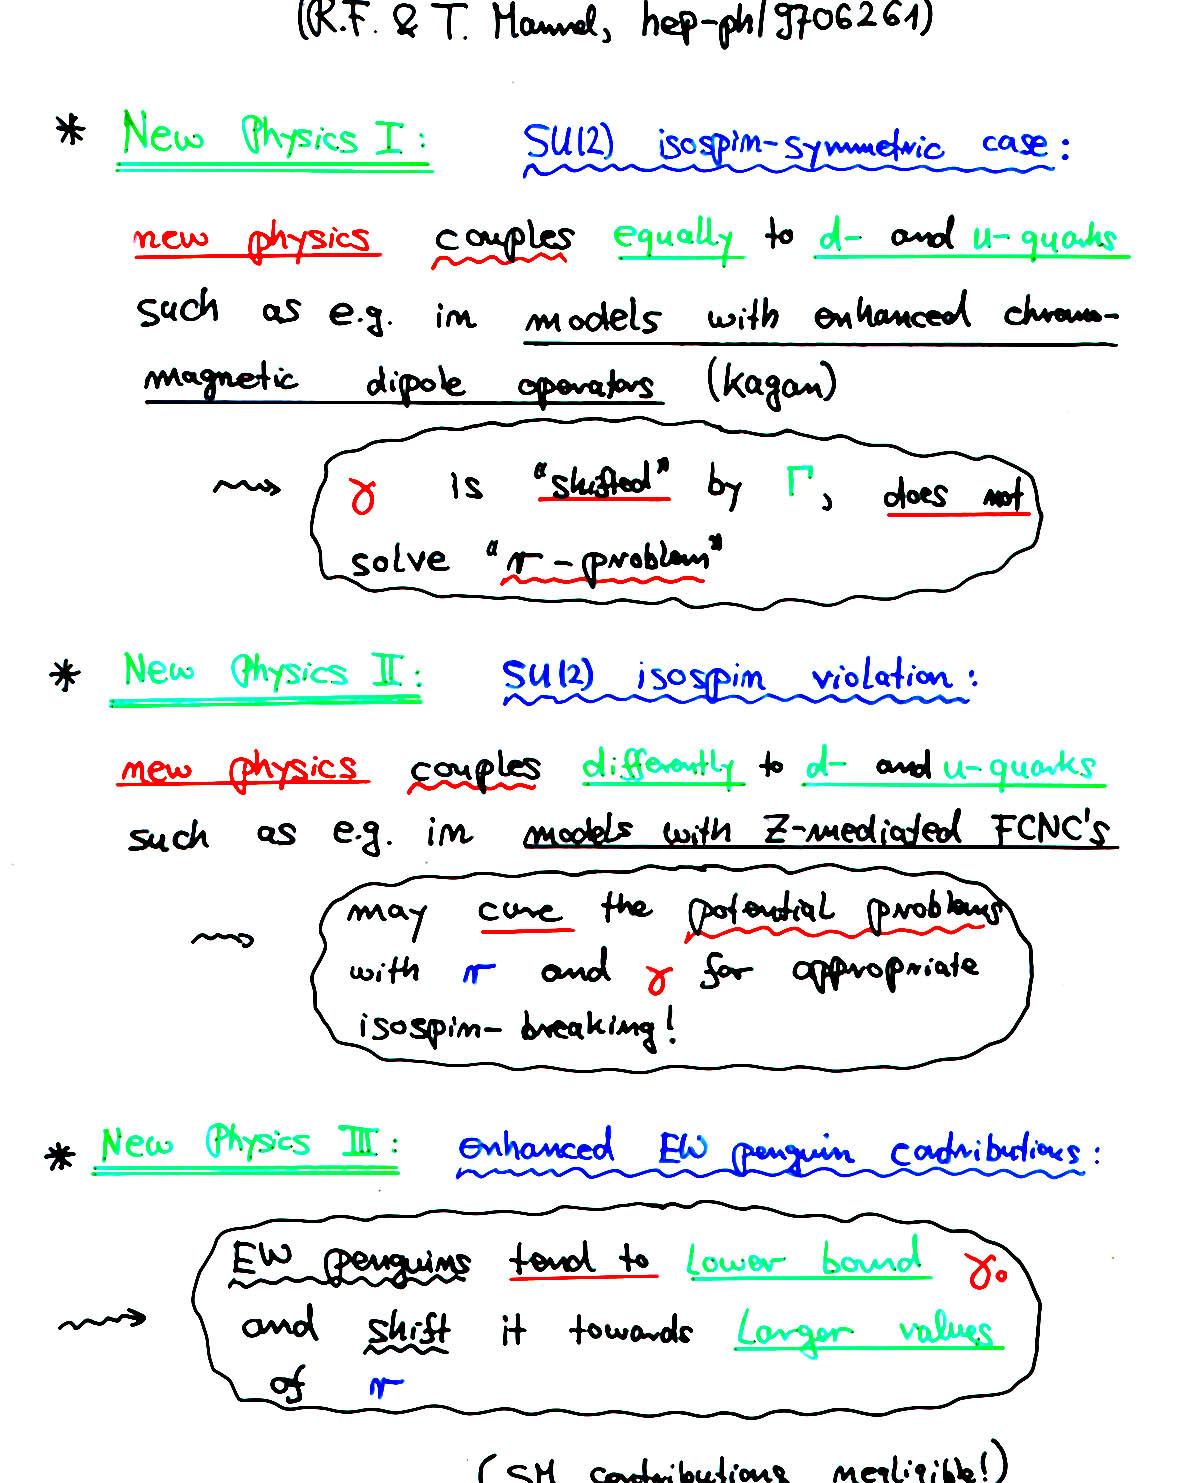 (R.F. & T. Mannel, hep-ph/9706261)
* New Physics I: SU(2) isospin-symmetric case:
new physics couples equally to d- and u-quarks
such as e.g. in models with enhanced chromo-
magnetic dipole operators (Kagan)
⇝ γ is "shifted" by Γ, does not
solve "r-problem"
* New Physics II: SU(2) isospin violation:
new physics couples differently to d- and u-quarks
such as e.g. in models with Z-mediated FCNC's
⇝ may cure the potential problems
with r and γ for appropriate
isospin-breaking!
* New Physics III: enhanced EW penguin contributions:
EW penguins tend to lower bound γ₀
⇝ and shift it towards larger values
of r
(SM contributions negligible!)